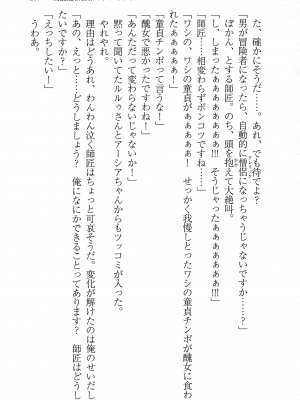 た、確かにそうだ……。あれ、でも待てよ？
「男が冒険者になったら、自動的に僧侶になっちゃうじゃないですか……？」
ぽかん、とする師匠。のち、頭を抱えて大絶叫。
「し、しまったぁぁぁぁぁぁ!!! そうじゃったぁぁぁぁぁぁぁ!!!」
「師匠……相変わらずポンコツですね……」
「ワシの、ワシの童貞がぁぁぁぁ！ せっかく我慢しとったワシの童貞チンポが醜女に食わ
れたぁぁぁぁぁ！」
「童貞チンポって言うな！」
「醜女で悪かったですわね！」
「あんただって変わらないじゃないか！」
黙って聞いてたルルゥさんとアーシアちゃんからもツッコミが入った。
やれやれ。
理由はどうあれ、わんわん泣く師匠はちょっと可哀そうだ。変化が解けたのは俺のせいだし。
「あの、えっと……どうしましょう？ 俺になにかできることってあります？ 師匠はどうし
たいですか？」
「えっちしたい！」
うわぁ。